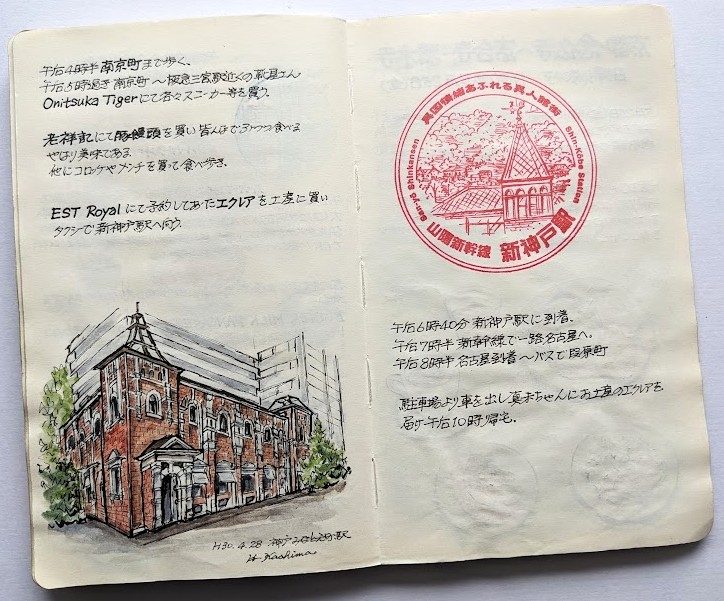 午后4時半 南京町まで歩く、
午后5時過ぎ 南京町〜阪急三宮駅近くの靴屋さん
Onitsuka Tigerにて各々スニーカー等を買う。
老祥記にて豚饅頭を買い皆んなで3ケづつ食べる
やはり美味である
他にコロッケやメンチを買って食べ歩き、
EST Royalにて予約してあったエクレアを土産に買い
タクシーで新神戸駅へ向う。
H30.4.28 神戸みなと元町駅
Kashima
異国情緒あふれる異人館街
San-yō Shinkansen
Shin-Kōbe Station
山陽新幹線 新神戸駅
午后6時40分 新神戸駅に到着、
午后7時半 新幹線で一路名古屋へ。
午后8時半 名古屋到着〜バスで 原町
駐車場より車を出し ちゃんにお土産のエクレアを
届け午后10時帰宅。